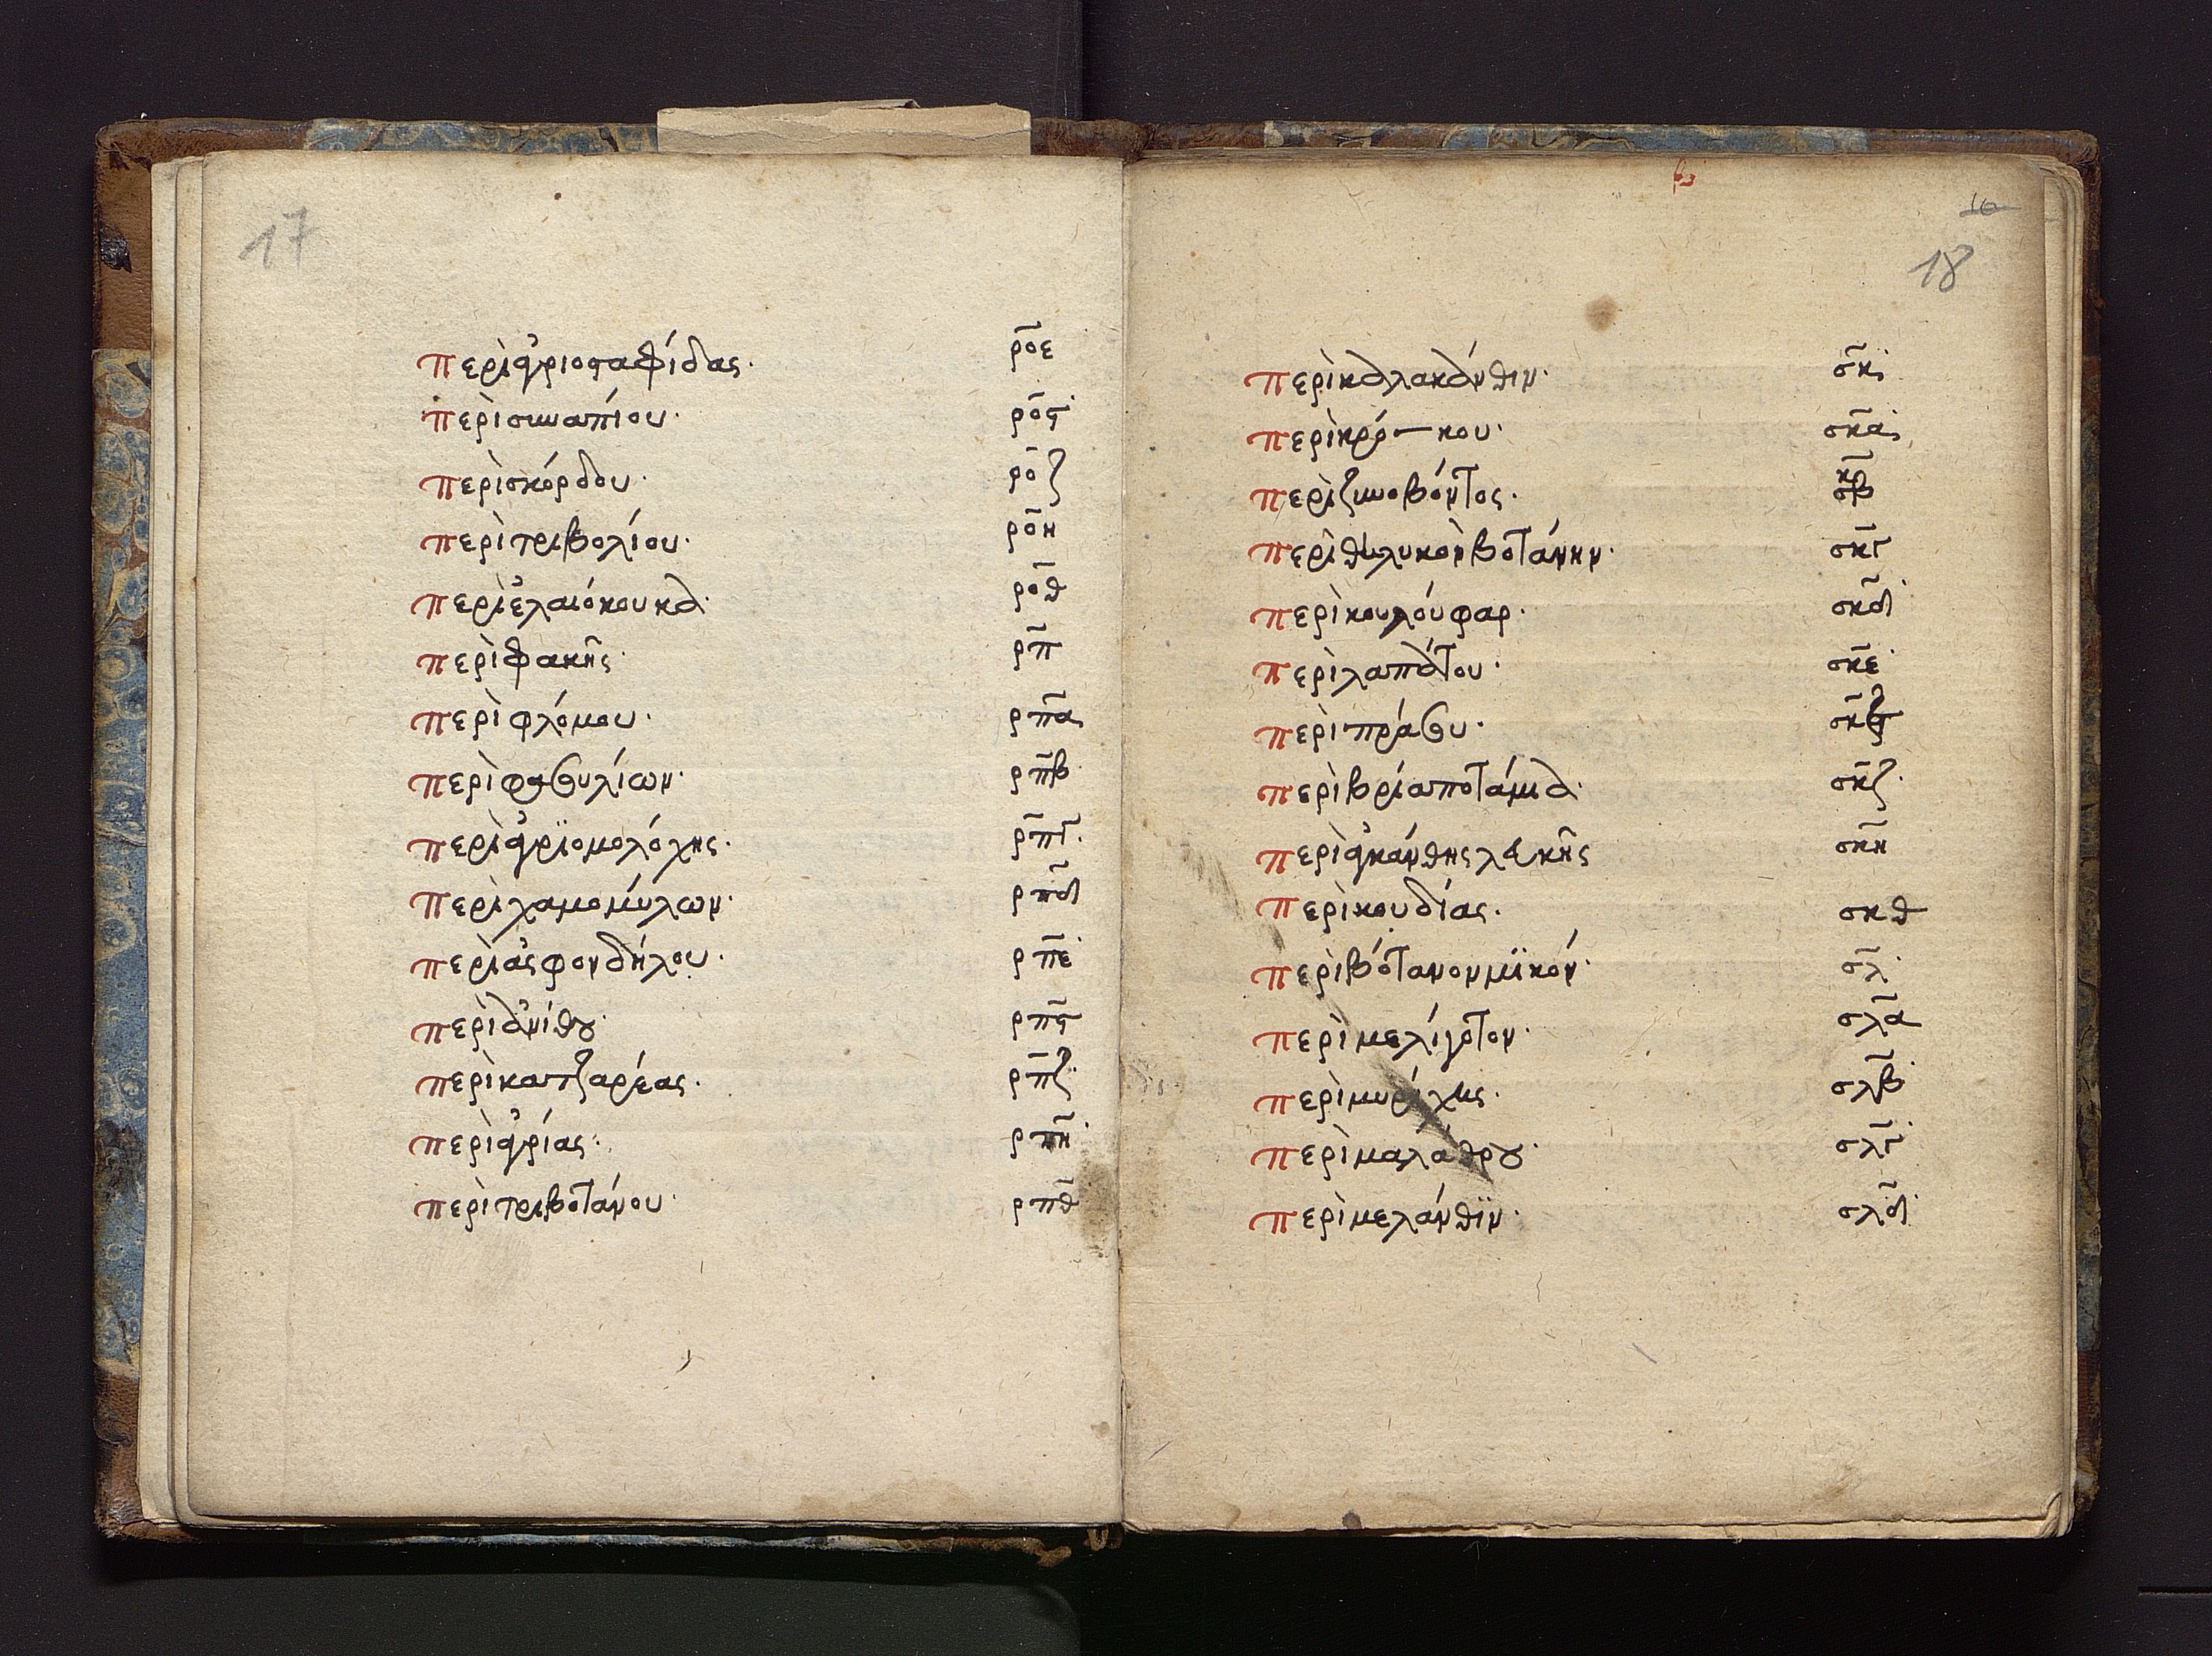 17
περὶ ἀγριοσταφίδας· ρο̅ε
περὶ σιναπίου· ρο̅ϛ·
περὶ σκόρδου· ρο̅ζ
περὶ τριβολίου· ρο̅η
περὶ ἐλαιόκουκα· ρο̅θ
περὶ φακῆς· ρπ̅
περὶ φλόμου· ρπ̅α
περὶ φασουλίων· ρπ̅β·
περὶ ἀγρϊομολόχης· ρπ̅γ·
περὶ χαμομύλων· ρπ̅δ
περὶ ἀσφονδήλου· ρπ̅ε·
περὶ ἀνίθου· ρπ̅ϛ
περὶ κατζαρέας· ρπ̅ζ·
περὶ ἀγρίας· ρπ̅η·
περὶ τριβοτάνου· ρπ̅θ
16
18
περὶ καλακάνθην· σκ̅·
περὶ κρό—κου· σκ̅α
περὶ ζινοβόντος· σκ̅β
περὶ θηλυκὸν βοτάνην· σκ̅γ
περὶ κουλούφαρ· σκ̅δ
περὶ λαπάτου· σκ̅ε·
περὶ πράσου· σκ̅ϛ
περὶ βρίαποτάμια· σκ̅ζ·
περὶ ἀκάνθης λευκῆς σκ̅η
περὶ κουδίας· σκθ
περὶ βότανον μϊκόν· σλ̅·
περὶ μελίγοτον· σλ̅α
περὶ μυρίχης· σλ̅β·
περὶ μαλάθρου· σλ̅γ·
περὶ μελάνθϊν· σλ̅δ·